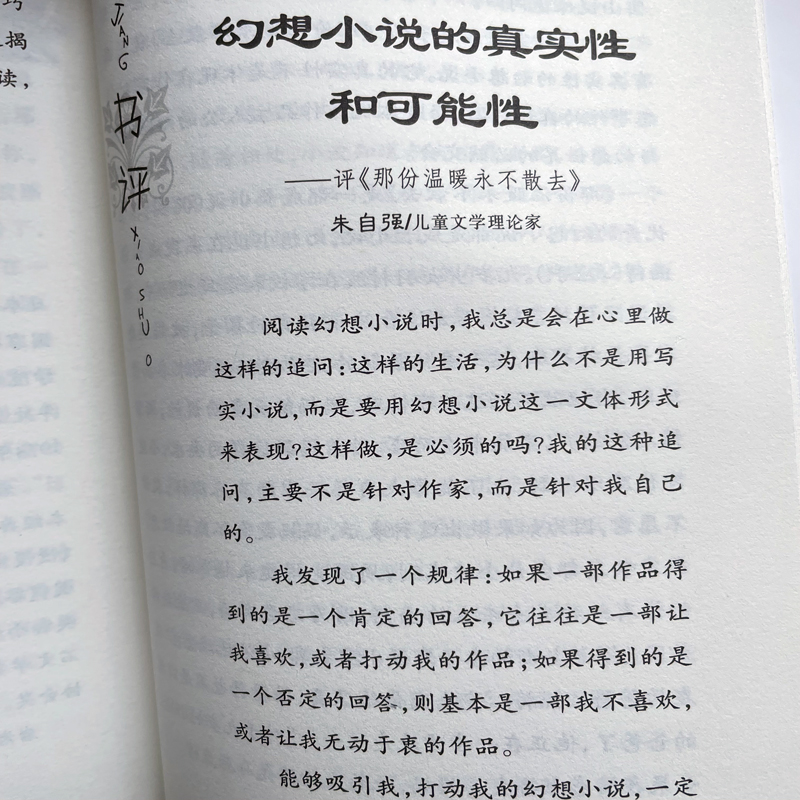 巧
揭
读，
JIANG
书评
XIAO SHU O
幻想小说的真实性
和可能性
——评《那份温暖永不散去》
朱自强/儿童文学理论家
阅读幻想小说时，我总是会在心里做
这样的追问：这样的生活，为什么不是用写
实小说，而是要用幻想小说这一文体形式
来表现？这样做，是必须的吗？我的这种追
问，主要不是针对作家，而是针对我自己
的。
我发现了一个规律：如果一部作品得
到的是一个肯定的回答，它往往是一部让
我喜欢，或者打动我的作品；如果得到的是
一个否定的回答，则基本是一部我不喜欢，
或者让我无动于衷的作品。
能够吸引我，打动我的幻想小说，一定